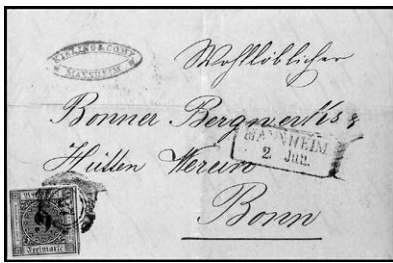 & COMP.
MANNHEIM
Wohllöblicher
Bonner Bergwerks &
Hütten Verein
MANNHEIM
2. Jun.
Bonn
9
Freimarke